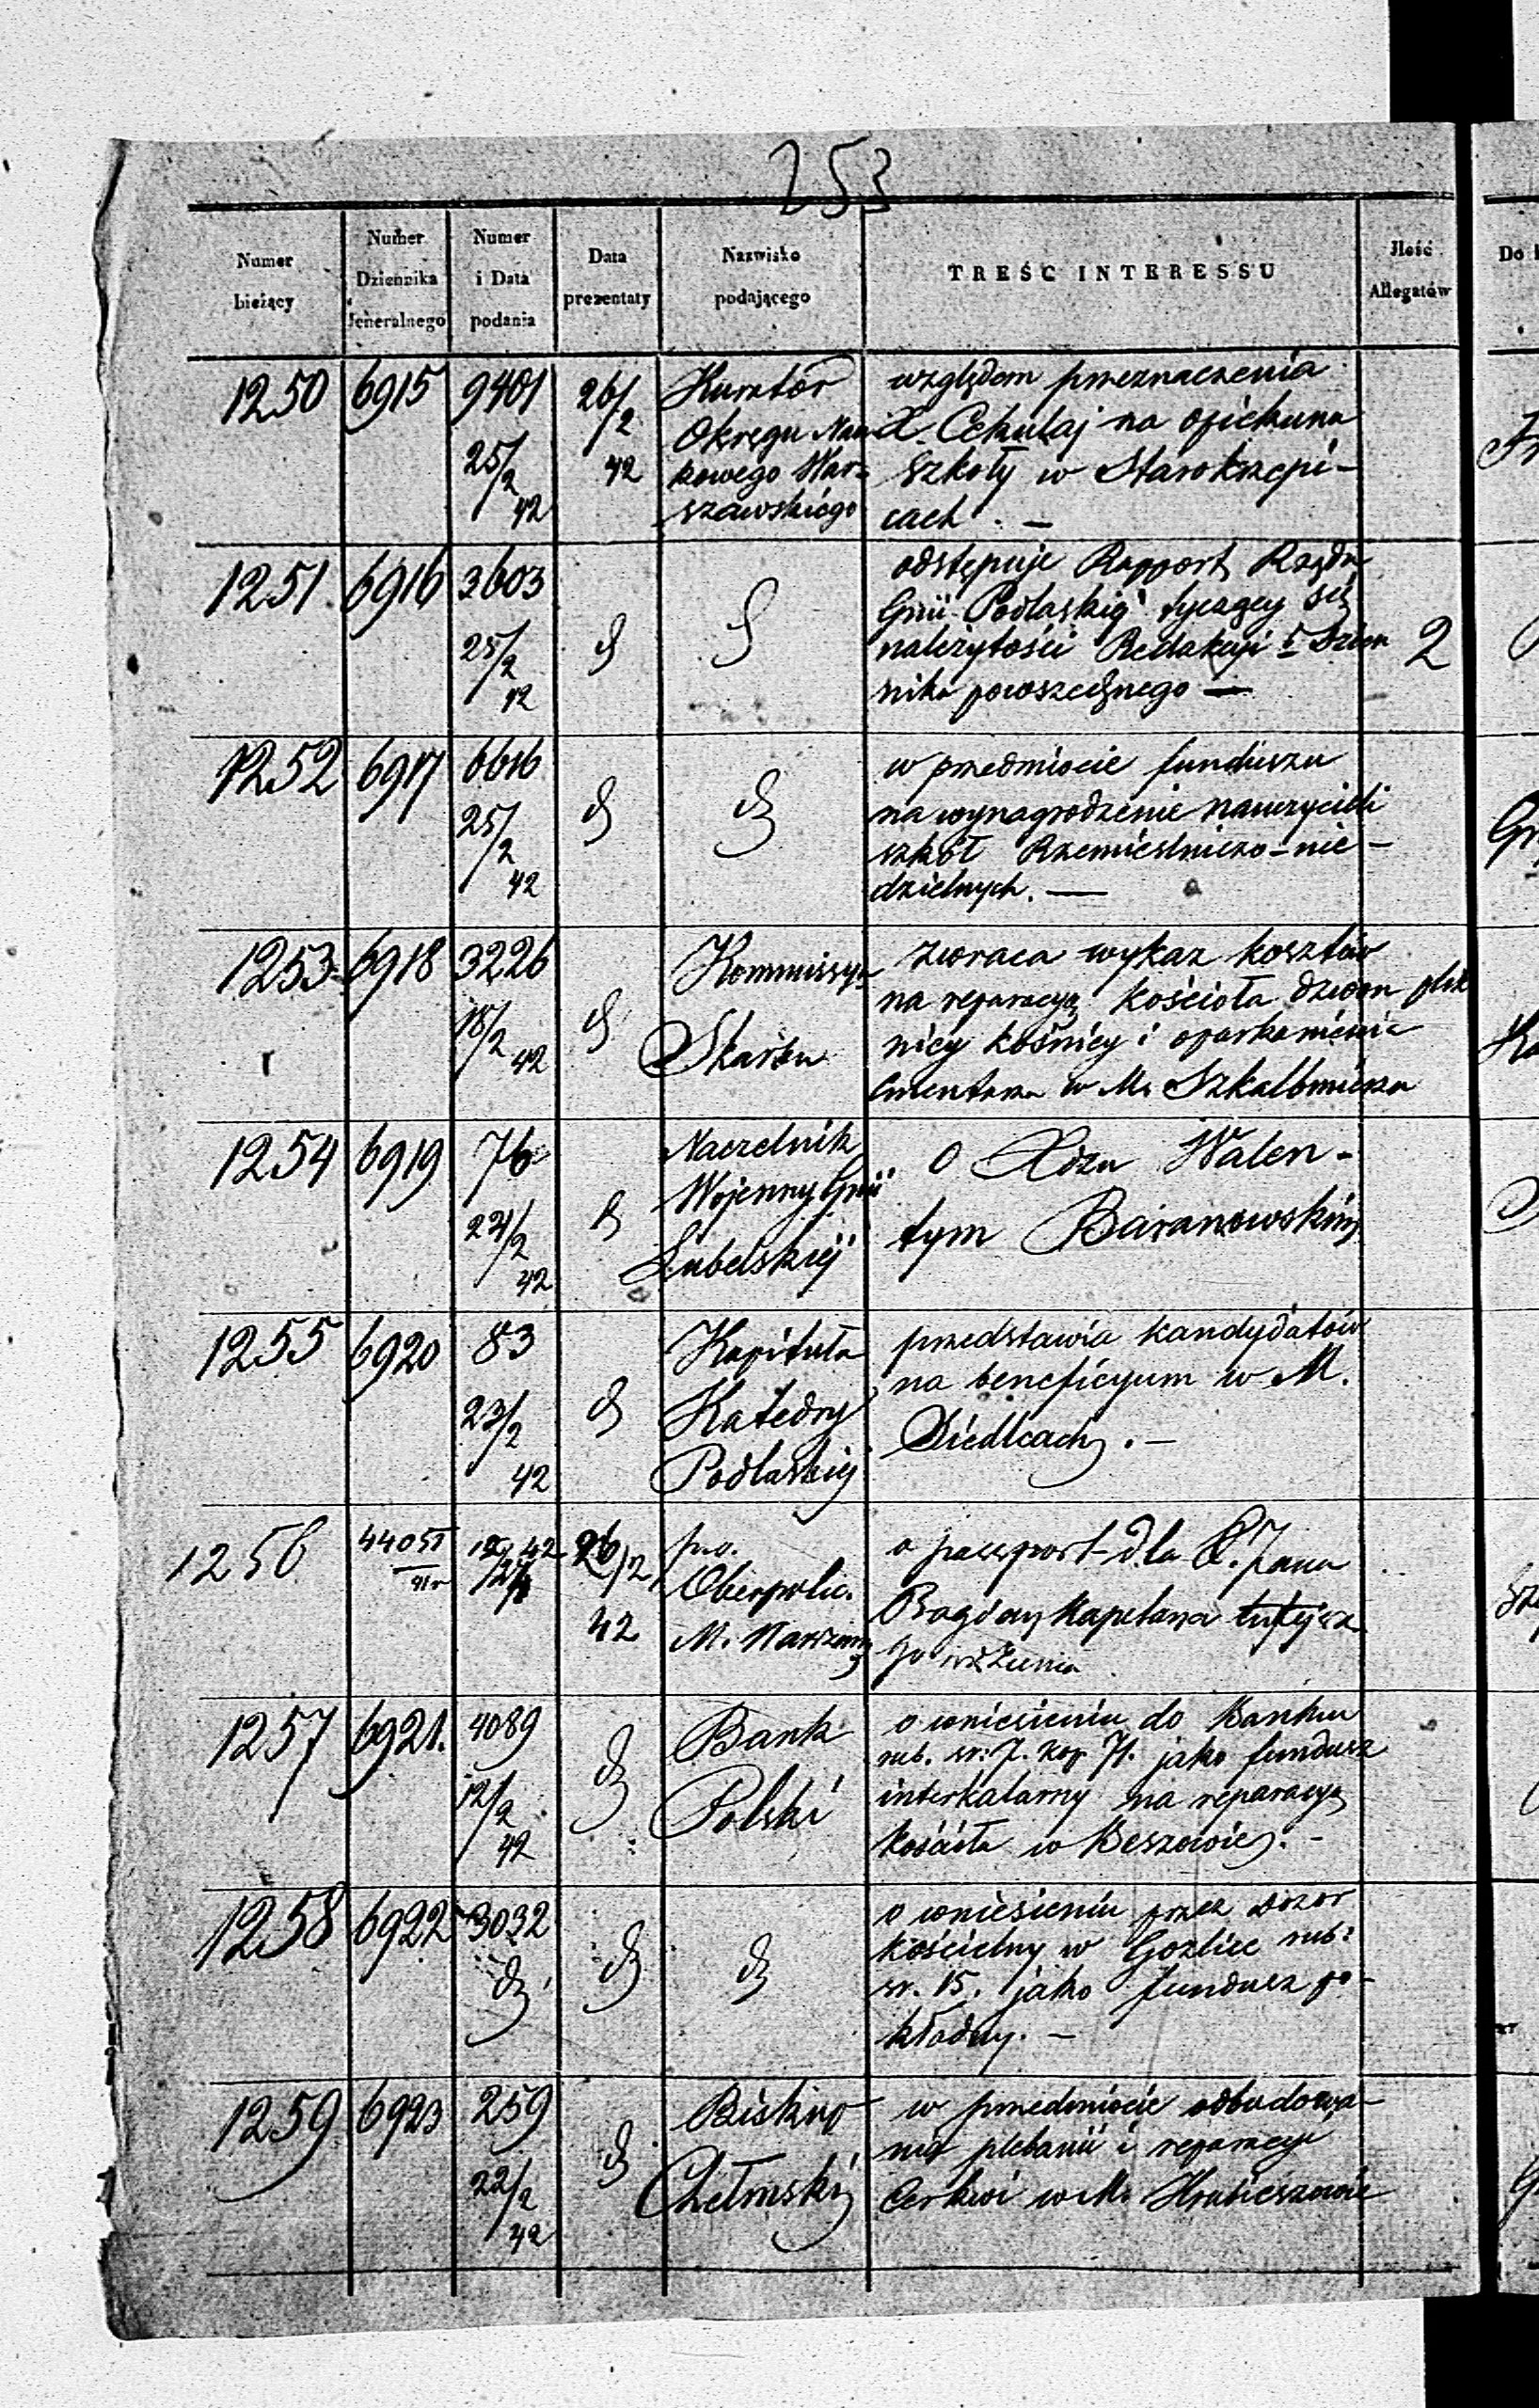 253
Numer bieżący
Numer Dziennika Jeneralnego
Numer i Data podania
Data prezentaty
Nazwisko podającego
TREŚĆ INTERESSU
Ilość Allegatów
Do
1250 6915 9401 25/2 42 26/2 42
Kurator
Okręgu Nau
kowego War=
szawskiego
względem przeznaczenia
X. Cekulaj na opiekuna
Szkoły w Starokrzepi-
cach . —
1251 6916 3603 25/2 42
odstępuje Rapport Rządu
Gnii Podlaskiej tyczący się
należytości Redakcyi Dzien
nika powszechnego —
2
1252 6917 6616 25/2 42
w przedmiocie funduszu
na wynagrodzenie nauczycieli
szkół Rzemieślniczo-nie-
dzielnych. —
1253 6918 3226 18/2 42
Kommissya
Skarbu
zwraca wykaz kosztów
na reparacyą kościoła dzwon
nicy kośnicy i oparkanienie
Cmentarza w M. Szkalbmierzu
plik
1254 6919 76 24/2 42
Naczelnik
Wojenny Gnii
Lubelskiej
o Xiędzu Walen-
tym Baranowskim
1255 6920 83 23/2 42
Kapituła
Katedry
Podlaskiej
przedstawia kandydatów
na beneficyum w M.
Siedlcach . —
1256 26/2 42
p.o.
Oberpolic.
M. Warszawy
o passport dla X. Jana
Kapelana
1257 6921. 4089 12/2 42
Bank
Polski
o wniesieniu do Banku
rub. sr: 7. kop. 71. jako fundusz
interkalarny na reparacyą
kościoła w Beszowie. —
1258 6922 3032
o wniesieniu przez dozor
kościelny w Gozlice rub:
sr. 15. jako fundusz po-
kładny. —
1259 6923 259 22/2 42
Biskup
Chełmski
w przedmiocie odbudowa-
nia plebanii i reparacyi
Cerkwi w M. Hrubieszowie